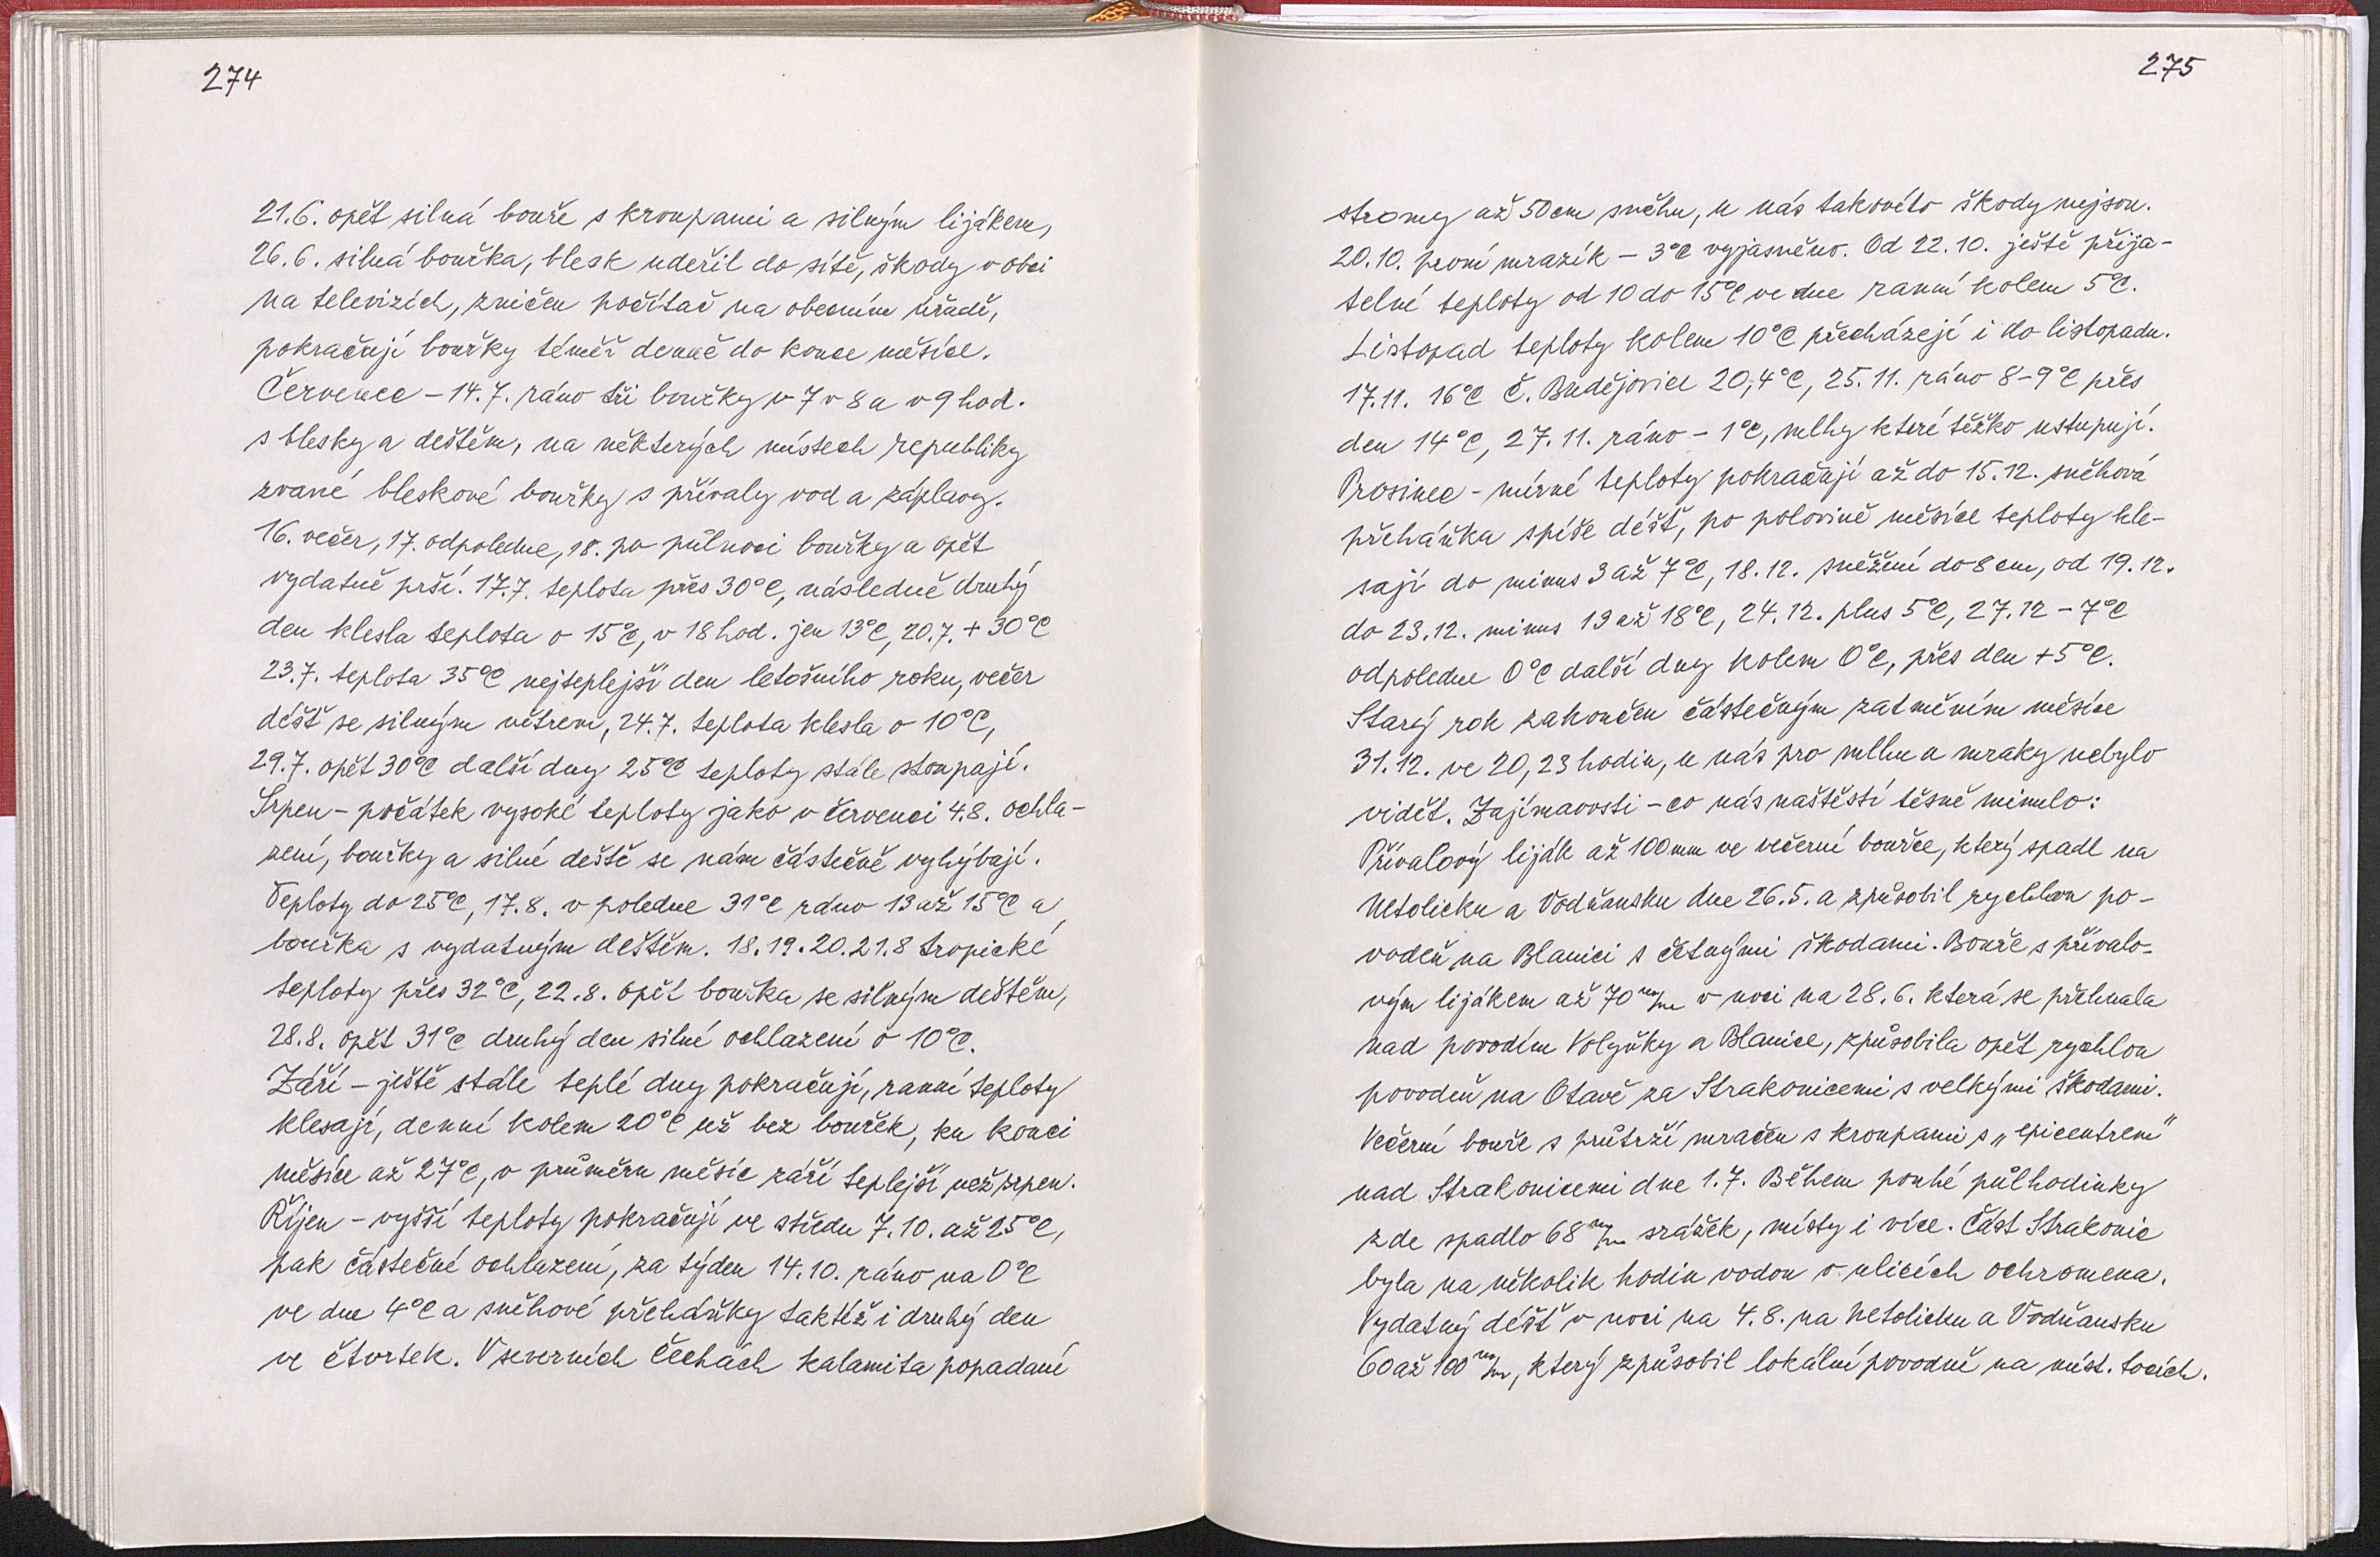 274
21.6. opět silná bouře s kroupami a silným lijákem,
26.6. silná bouřka, blesk udeřil do sítě, škody v obci
na televizích, zničen počítač na obecním úřadě,
pokračují bouřky téměř denně do konce měsíce.
Červenec – 14.7. ráno tři bouřky v 7 v 8 a v 9 hod.
s blesky a deštěm, na některých místech republiky
zvané bleskové bouřky s přívaly vod a záplavy.
16. večer, 17. odpoledne, 18. po půlnoci bouřky a opět
vydatně prší. 17.7. teplota přes 30°C, následně druhý
den klesla teplota o 15°C, v 18 hod. jen 13°C, 20.7. + 30°C
23.7. teplota 35°C nejteplejší den letošního roku, večer
déšť se silným větrem, 24.7. teplota klesla o 10°C,
29.7. opět 30°C další dny 25°C teploty stále stoupají.
Srpen – počátek vysoké teploty jako v červenci 4.8. ochla-
zení, bouřky a silné deště se nám částečně vyhýbají.
Teploty do 25°C, 17.8. v poledne 31°C ráno 13 až 15°C a
bouřka s vydatným deštěm. 18.19.20.21.8 tropické
teploty přes 32°C, 22.8. opět bouřka se silným deštěm,
28.8. opět 31°C druhý den silné ochlazení o 10°C.
Září – ještě stále teplé dny pokračují, ranní teploty
klesají, denní kolem 20°C už bez bouřek, ku konci
měsíce až 27°C, v průměru měsíc září teplejší než srpen.
Říjen – vyšší teploty pokračují ve středu 7.10. až 25°C,
pak částečné ochlazení, za týden 14.10. ráno na 0°C
ve dne 4°C a sněhové přeháňky taktéž i druhý den
ve čtvrtek. V severních Čechách kalamita popadaní
275
stromy až 50cm sněhu, u nás takovéto škody nejsou.
20.10. první mrazík – 3°C vyjasněno. Od 22.10. ještě přija-
telné teploty od 10 do 15°C ve dne ranní kolem 5°C.
Listopad teploty kolem 10°C přecházejí i do listopadu.
17.11. 16°C Č. Budějovice 20,4°C, 25.11. ráno 8-9°C přes
den 14°C, 27.11. ráno – 1°C, mlhy které těžko ustupují.
Prosinec – mírné teploty pokračují až do 15.12. sněhová
přeháňka spíše déšť, po polovině měsíce teploty kle-
sají do minus 3 až 7°C, 18.12. sněžení do 8 cm, od 19.12.
do 23.12. minus 13 až 18°C, 24.12. plus 5°C, 27.12 – 7°C
odpoledne 0°C další dny kolem 0°C, přes den +5°C.
Starý rok zakončen částečným zatměním měsíce
31.12. ve 20,23 hodin, u nás pro mlhu a mraky nebylo
vidět. Zajímavosti – co nás naštěstí těsně minulo:
Přívalový liják až 100mm ve večerní bouřce, který spadl na
Netolicku a Vodňansku dne 26.5. a způsobil rychlou po-
vodeň na Blanici s četnými škodami. Bouře s přívalo-
vým lijákem až 70 m/m v noci na 28.6. která se přehnala
nad povodím Volyňky a Blanice, způsobila opět rychlou
povodeň na Otavě za Strakonicemi s velkými škodami.
Večerní bouře s průtrží mračen s kroupami s „epicentrem"
nad Strakonicemi dne 1.7. Během pouhé půlhodinky
zde spadlo 68 m/m srážek, místy i více. Část Strakonic
byla na několik hodin vodou v ulicích ochromena.
Vydatný déšť v noci na 4.8. na Netolicku a Vodňansku
60 až 100 m/m, který způsobil lokální povodně na míst. tocích.